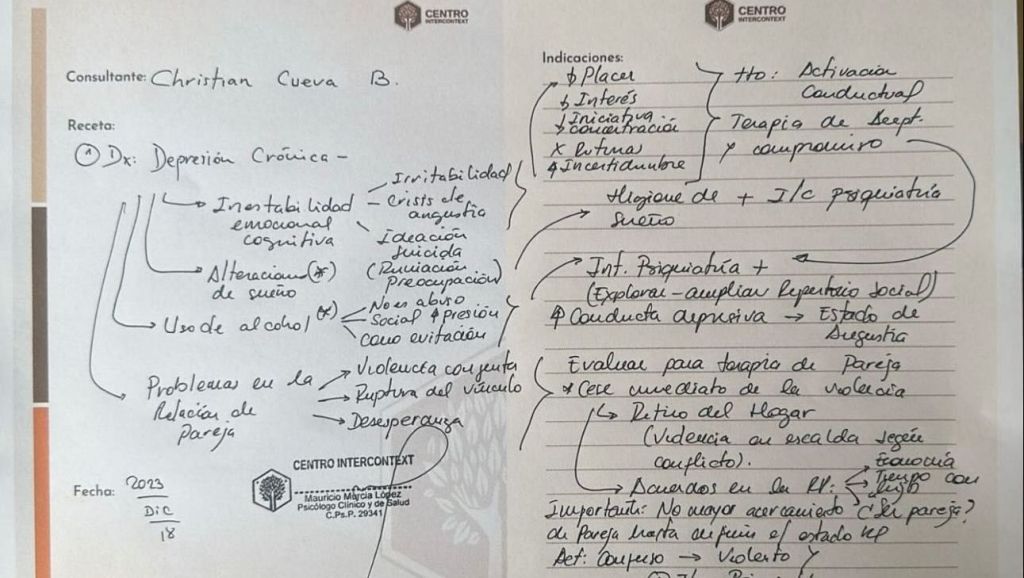 CENTRO
INTERCONTEXT
Consultante: Christian Cueva B.
Receta:
① Dx: Depresión Crónica -
Inestabilidad
emocional
cognitiva
- Irritabilidad
- Crisis de
angustia
Ideación
suicida
(Rumiación
Preocupación)
Alteracion (*)
de sueño
Uso de alcohol (*)
No es abuso
Social ↑ presión
como evitación
Problemas en la
Relación de
pareja
Violencia conjunta
Ruptura del vínculo
Desesperanza
Fecha: 2023
Dic
18
CENTRO INTERCONTEXT
Mauricio Murcia López
Psicólogo Clínico y de Salud
C.Ps.P. 29341
CENTRO
INTERCONTEXT
Indicaciones:
↓ Placer
↓ Interés
↓ Iniciativa
↓ concentración
X Rutinas
↑ Incertidumbre
tto: Activación
Conductual
Terapia de Acept.
y compromiso
Higiene de + I/C psiquiatría
sueño
Int. Psiquiatría +
(Explorar - ampliar Repertorio Social)
↑ Conducta depresiva → Estado de
Angustia
Evaluar para terapia de Pareja
* Cese inmediato de la violencia
Retiro del Hogar
(Violencia en escalda según
conflicto).
Acuerdos en la RP:
Economía
Tiempo con
hijo
¿Ser pareja?
Importante: No mayor acercamiento
de Pareja hasta definir el estado RP
Act: Confuso → Violento y